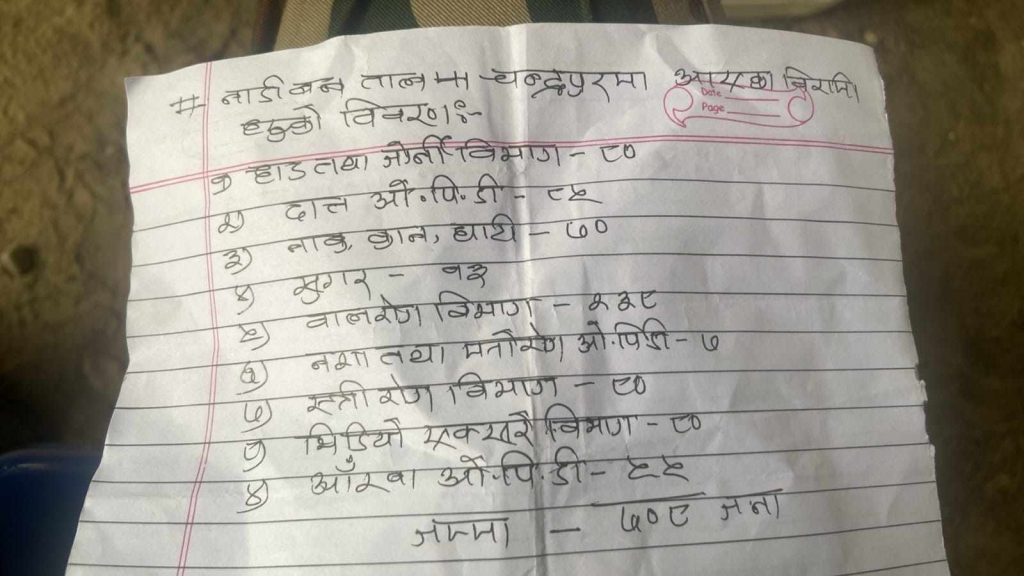 # नाडी बन्न तालमा चन्द्रपुरमा आएका बिरामी
Date
Page
हरुको विवरण :-
१) हाड तथा जोर्नी विभाग - ८०
२) दात ओ.पि.डी - ८५
३) नाक, कान, घाटी - ७०
४) सुगर - १३
५) बालरोग विभाग - २३८
६) नशा तथा मनोरोग ओ.पि.डी - ७
७) स्त्री रोग विभाग - ८०
८) भिडियो एक्सरे विभाग - ८०
९) आँखा ओ.पि.डी - ५५
जम्मा - ७०८ जना